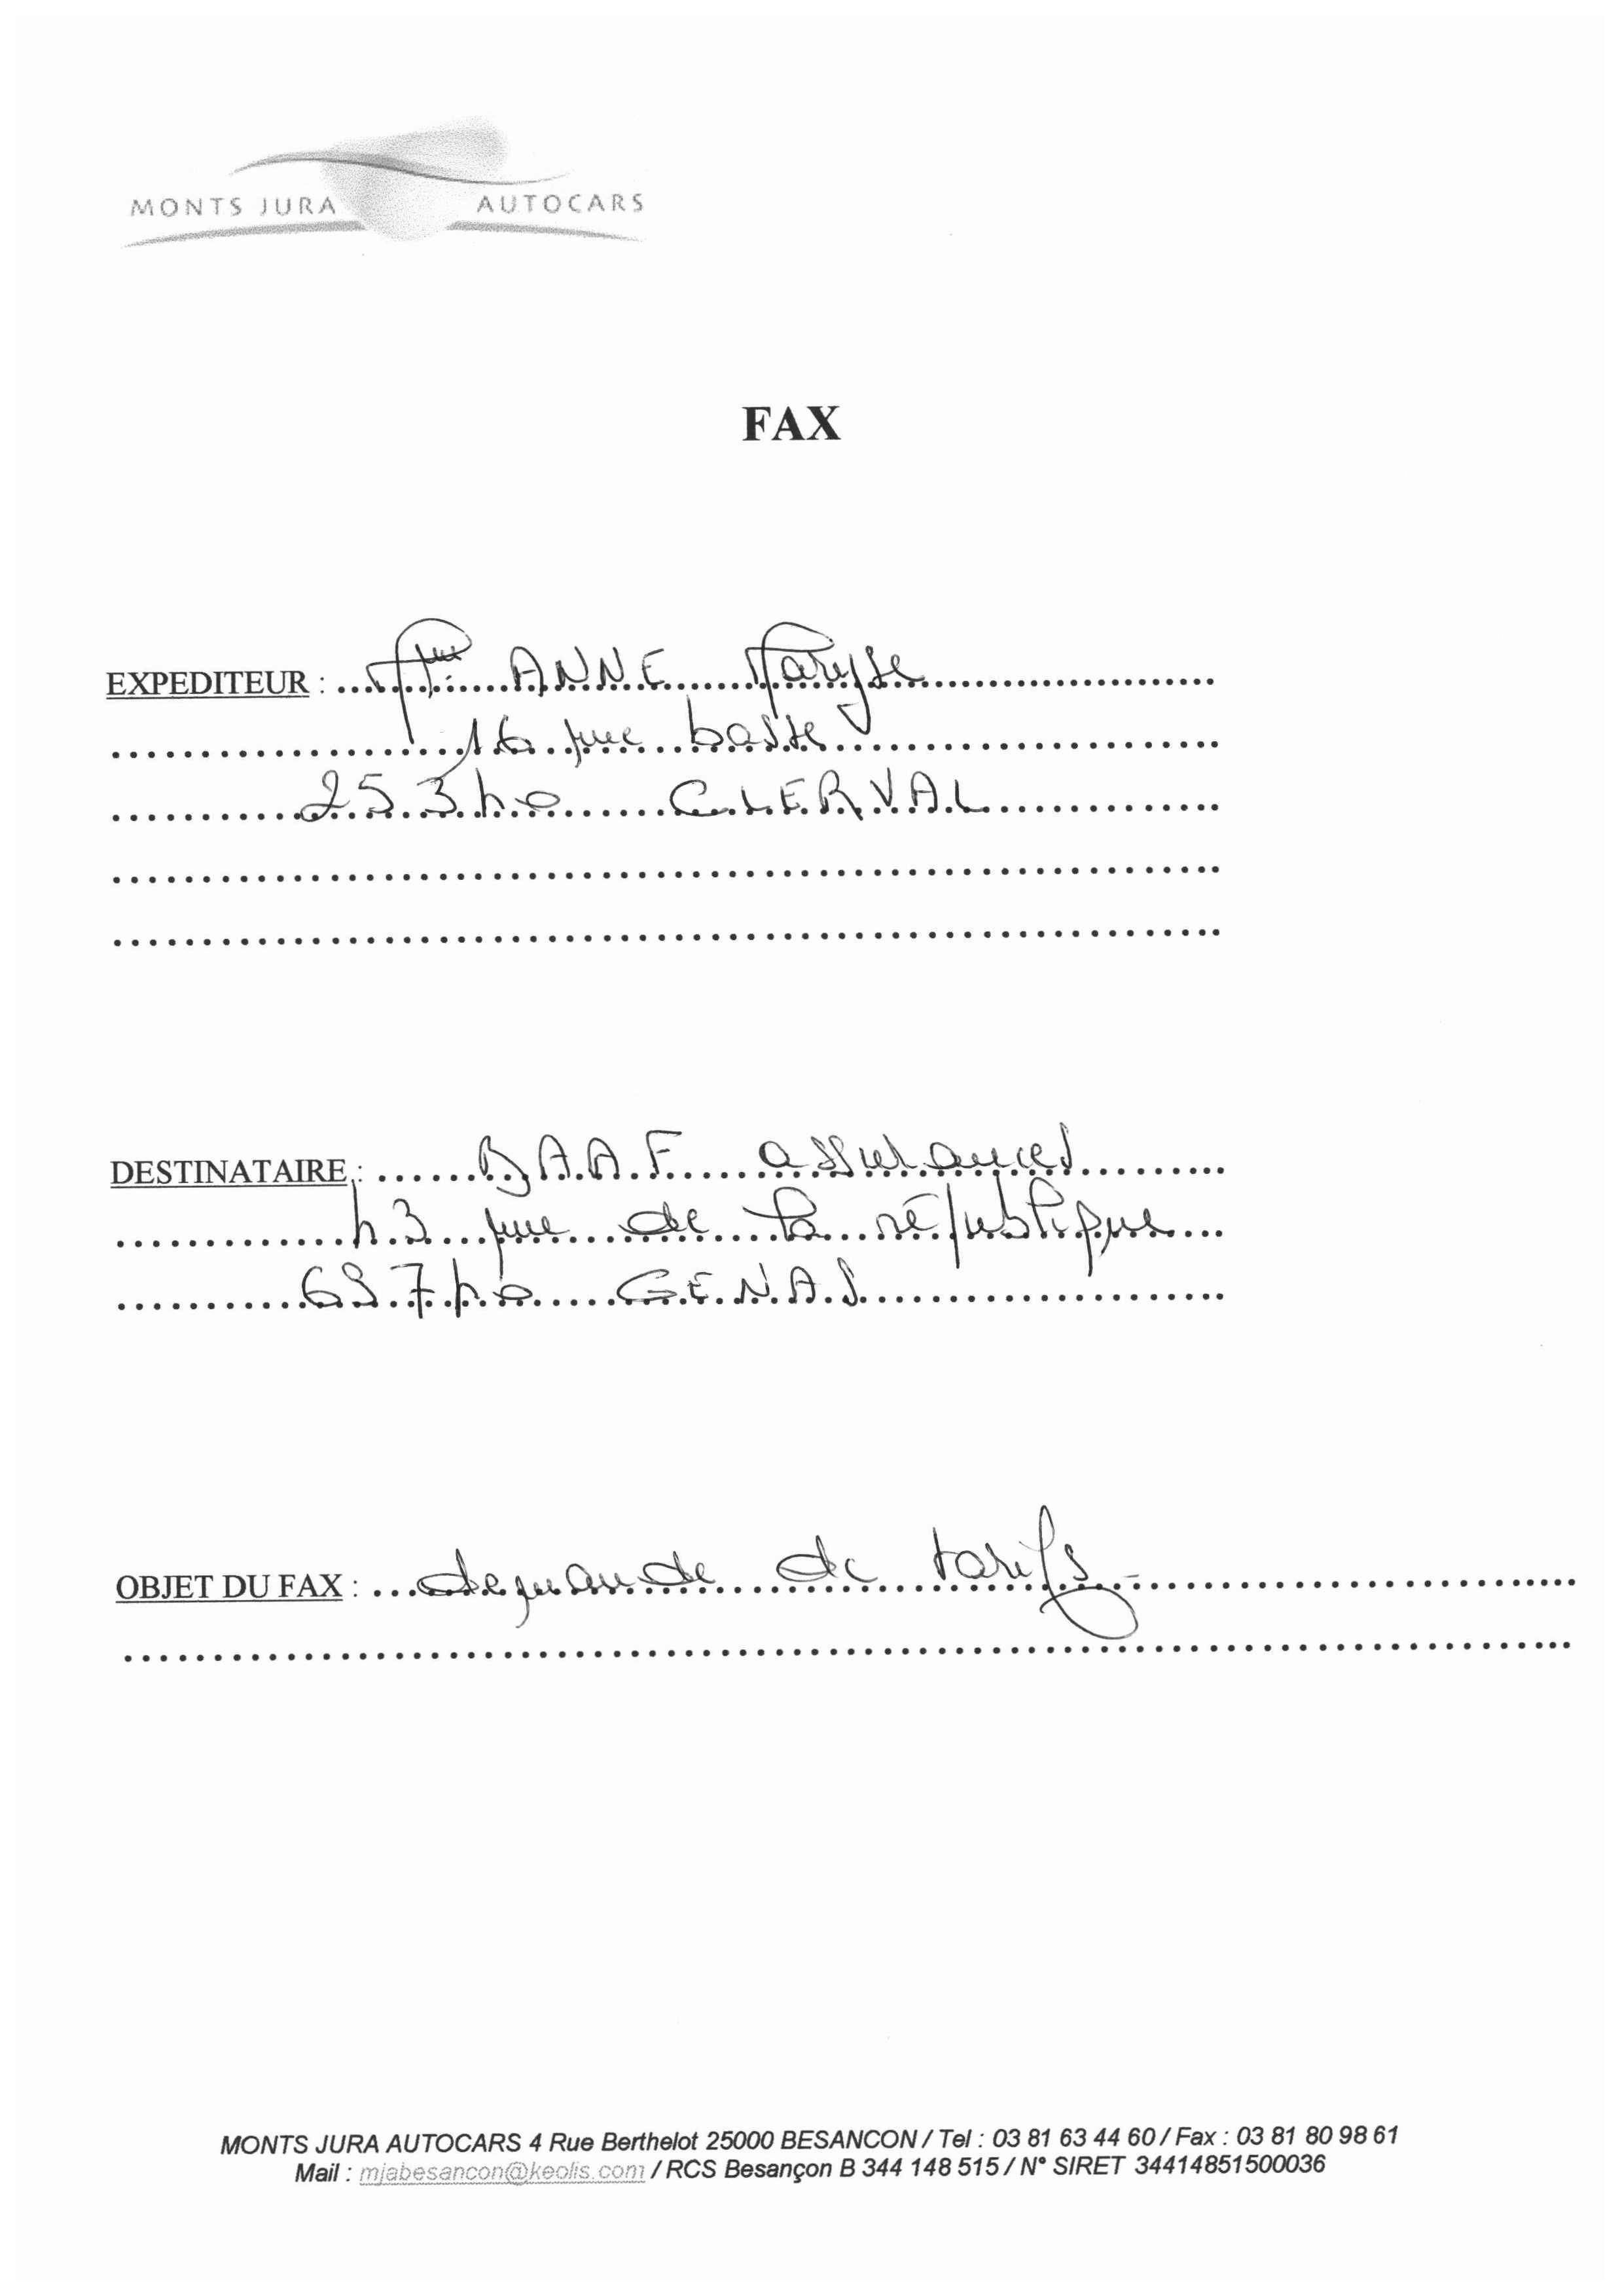 MONTS JURA AUTOCARS
FAX
EXPEDITEUR : Mme ANNE Maryse
16 rue basse
25340 CLERVAL
DESTINATAIRE : BAAF assurances
43 rue de la république
69740 GENAS
OBJET DU FAX : demande de tarifs
MONTS JURA AUTOCARS 4 Rue Berthelot 25000 BESANCON / Tel : 03 81 63 44 60 / Fax : 03 81 80 98 61
Mail : mjabesancon@keolis.com / RCS Besançon B 344 148 515 / N° SIRET 34414851500036